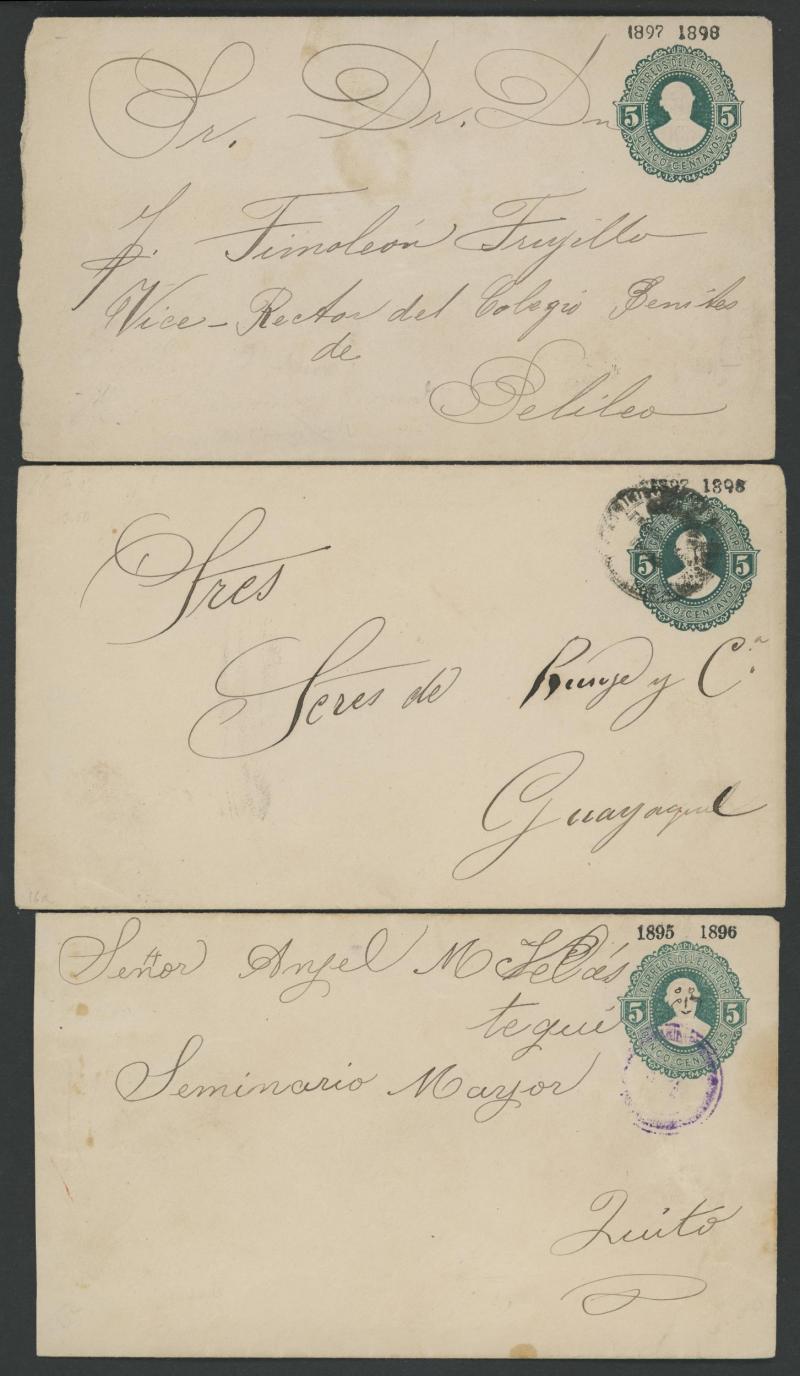 1897 1898
CORREOS DEL ECUADOR
5 5
CINCO CENTAVOS
1894
Sr. Dr. Dn
J. Timoleón Trujillo
Vice-Rector del Colegio Benites
de
Pelileo
1897 1898
CORREOS DEL ECUADOR
5 5
CINCO CENTAVOS
1894
Sres
Seres de Runge y C.ª
Guayaquil
1895 1896
CORREOS DEL ECUADOR
5 5
CINCO CENTAVOS
1894
Señor Anjel M
tegui
Seminario Mayor
Quito